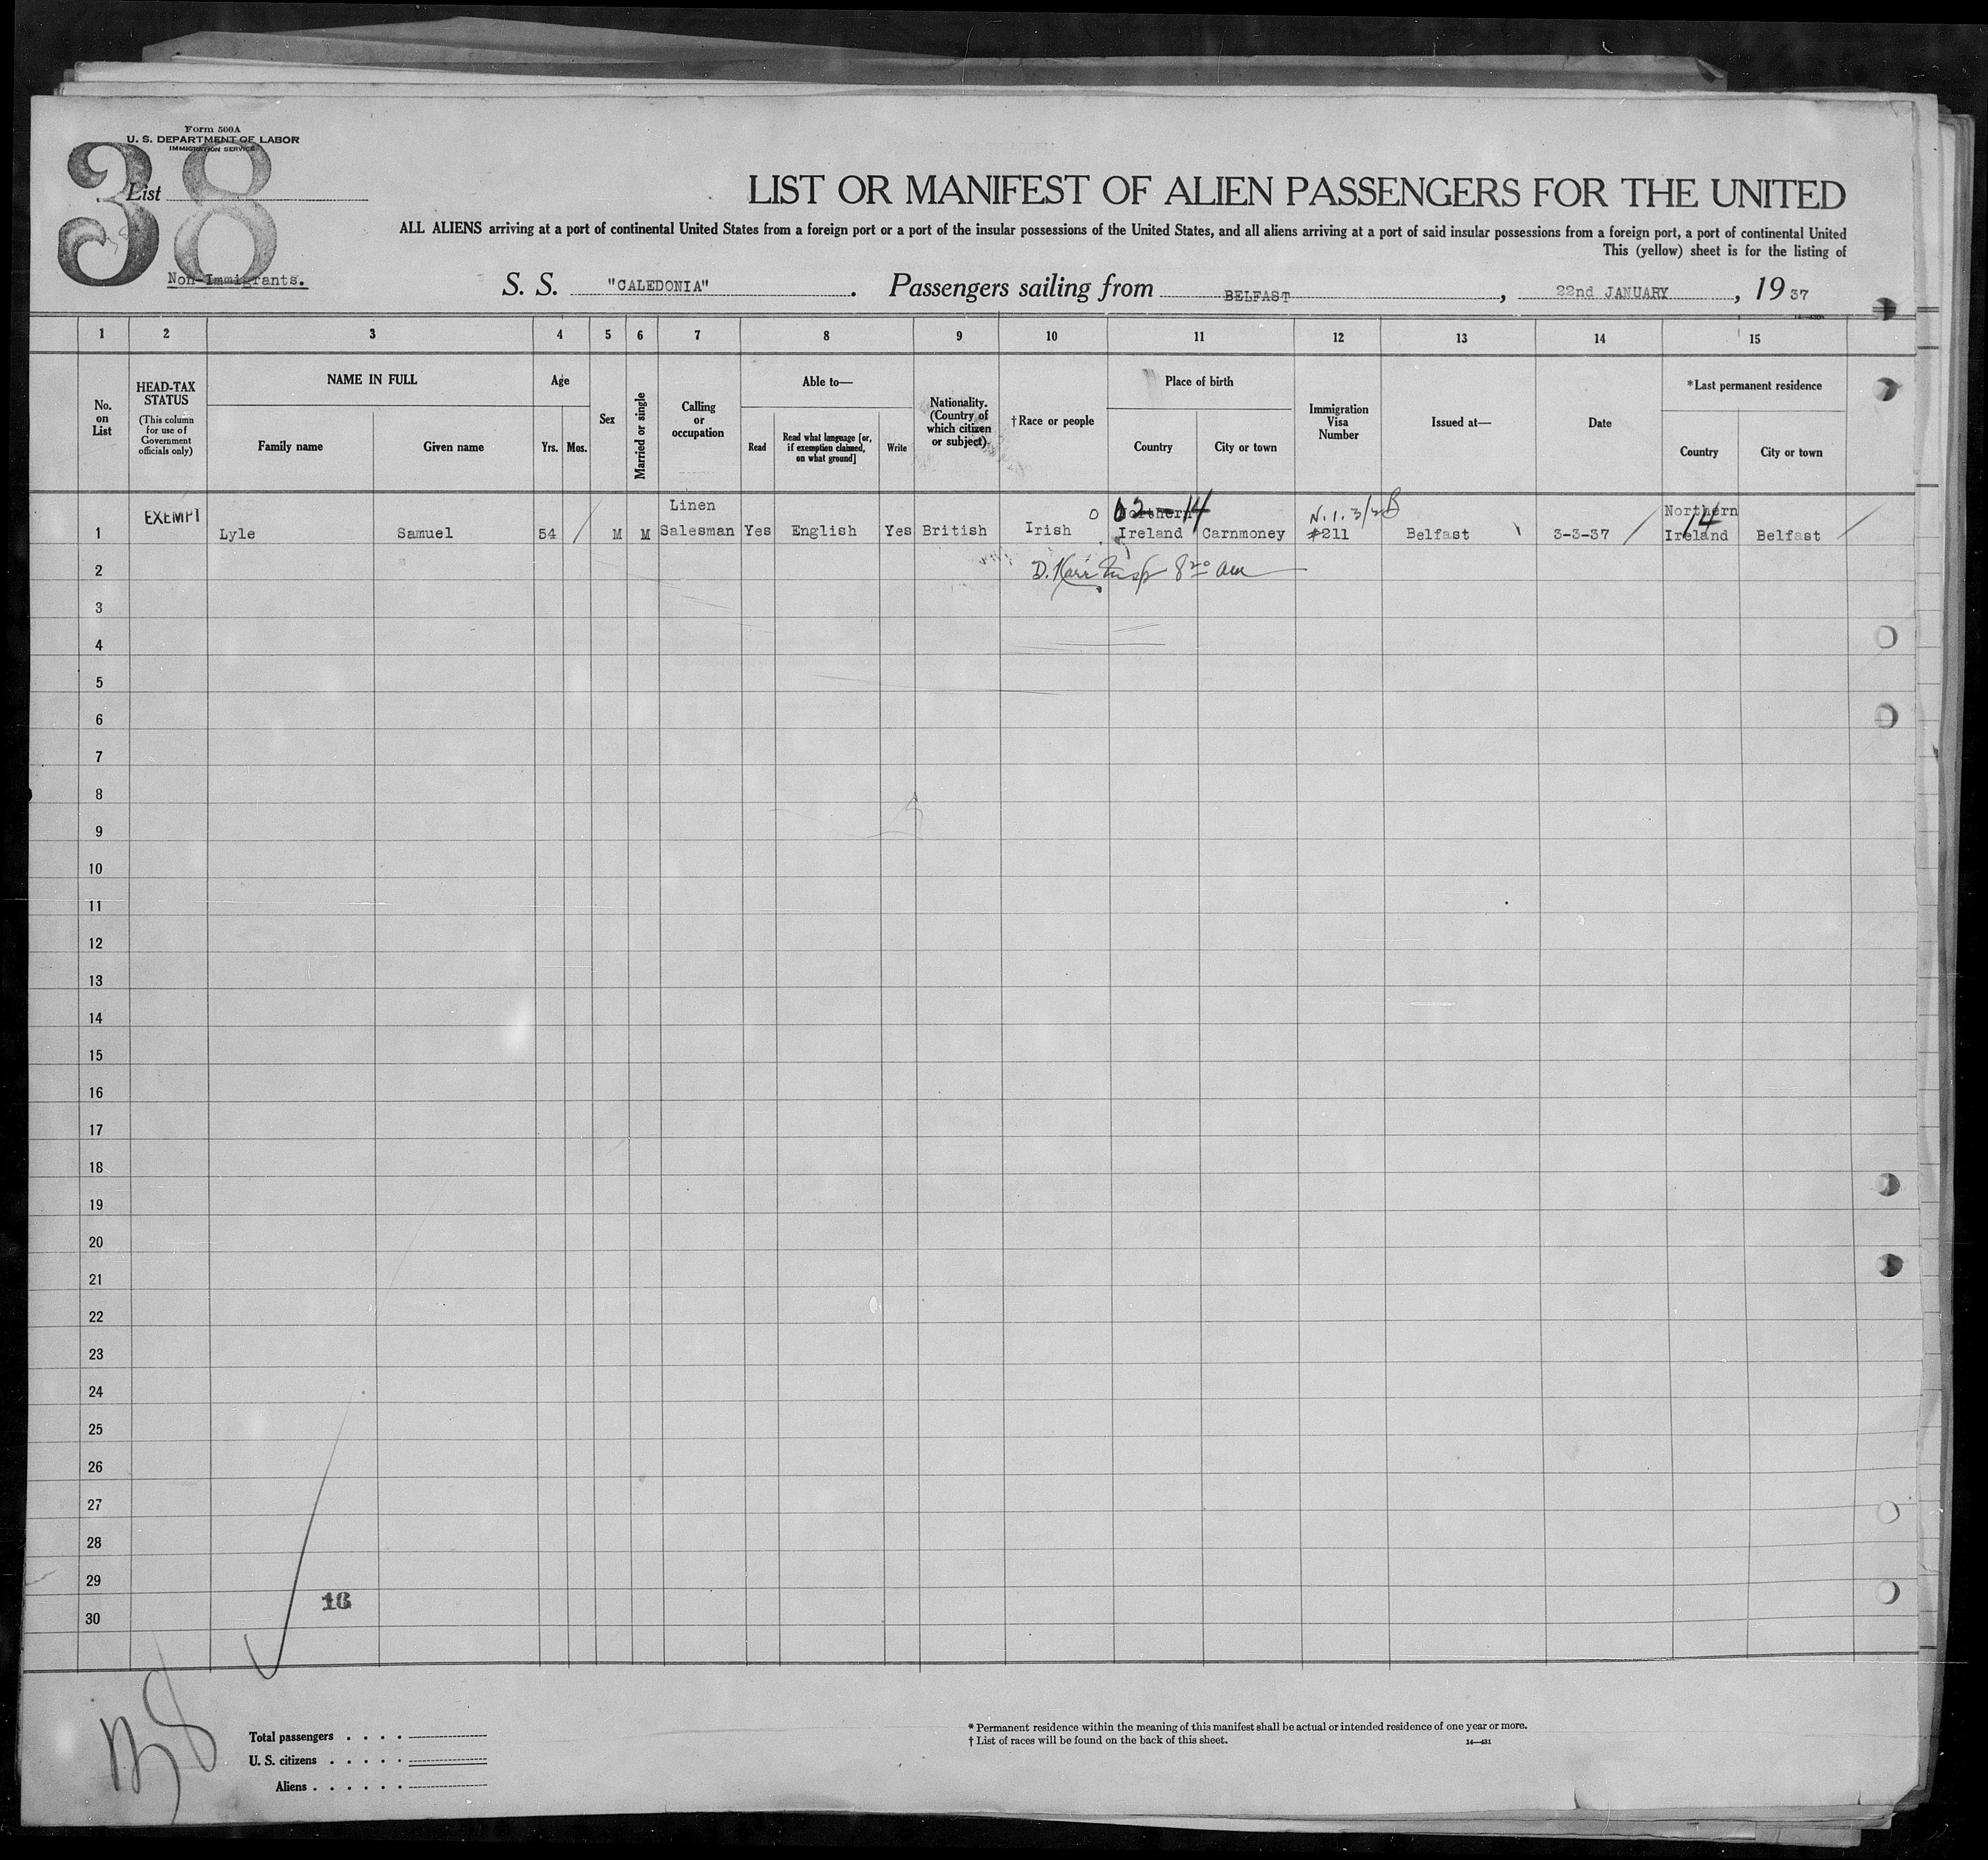 Form 500A
U. S. DEPARTMENT OF LABOR
IMMIGRATION SERVICE
38
List
Non-Immigrants.
LIST OR MANIFEST OF ALIEN PASSENGERS FOR THE UNITED
ALL ALIENS arriving at a port of continental United States from a foreign port or a port of the insular possessions of the United States, and all aliens arriving at a port of said insular possessions from a foreign port, a port of continental United
This (yellow) sheet is for the listing of
S. S. "CALEDONIA". Passengers sailing from BELFAST, 22nd JANUARY, 1937
1 2 3 4 5 6 7 8 9 10 11 12 13 14 15
No. on List
HEAD-TAX STATUS
(This column for use of Government officials only)
NAME IN FULL
Family name
Given name
Age
Yrs. Mos.
Sex
Married or single
Calling or occupation
Able to—
Read
Read what language [or, if exemption claimed, on what ground]
Write
Nationality. (Country of which citizen or subject)
†Race or people
Place of birth
Country
City or town
Immigration Visa Number
Issued at—
Date
*Last permanent residence
Country
City or town
1 EXEMPT Lyle Samuel 54 M M Linen Salesman Yes English Yes British Irish Northern Ireland Carnmoney #211 Belfast 3-3-37 Northern Ireland Belfast
02-14
14
2
8 20 am
3
4
5
6
7
8
9
10
11
12
13
14
15
16
17
18
19
20
21
22
23
24
25
26
27
28
29
16
30
Total passengers
U. S. citizens
Aliens
* Permanent residence within the meaning of this manifest shall be actual or intended residence of one year or more.
† List of races will be found on the back of this sheet.
14—431